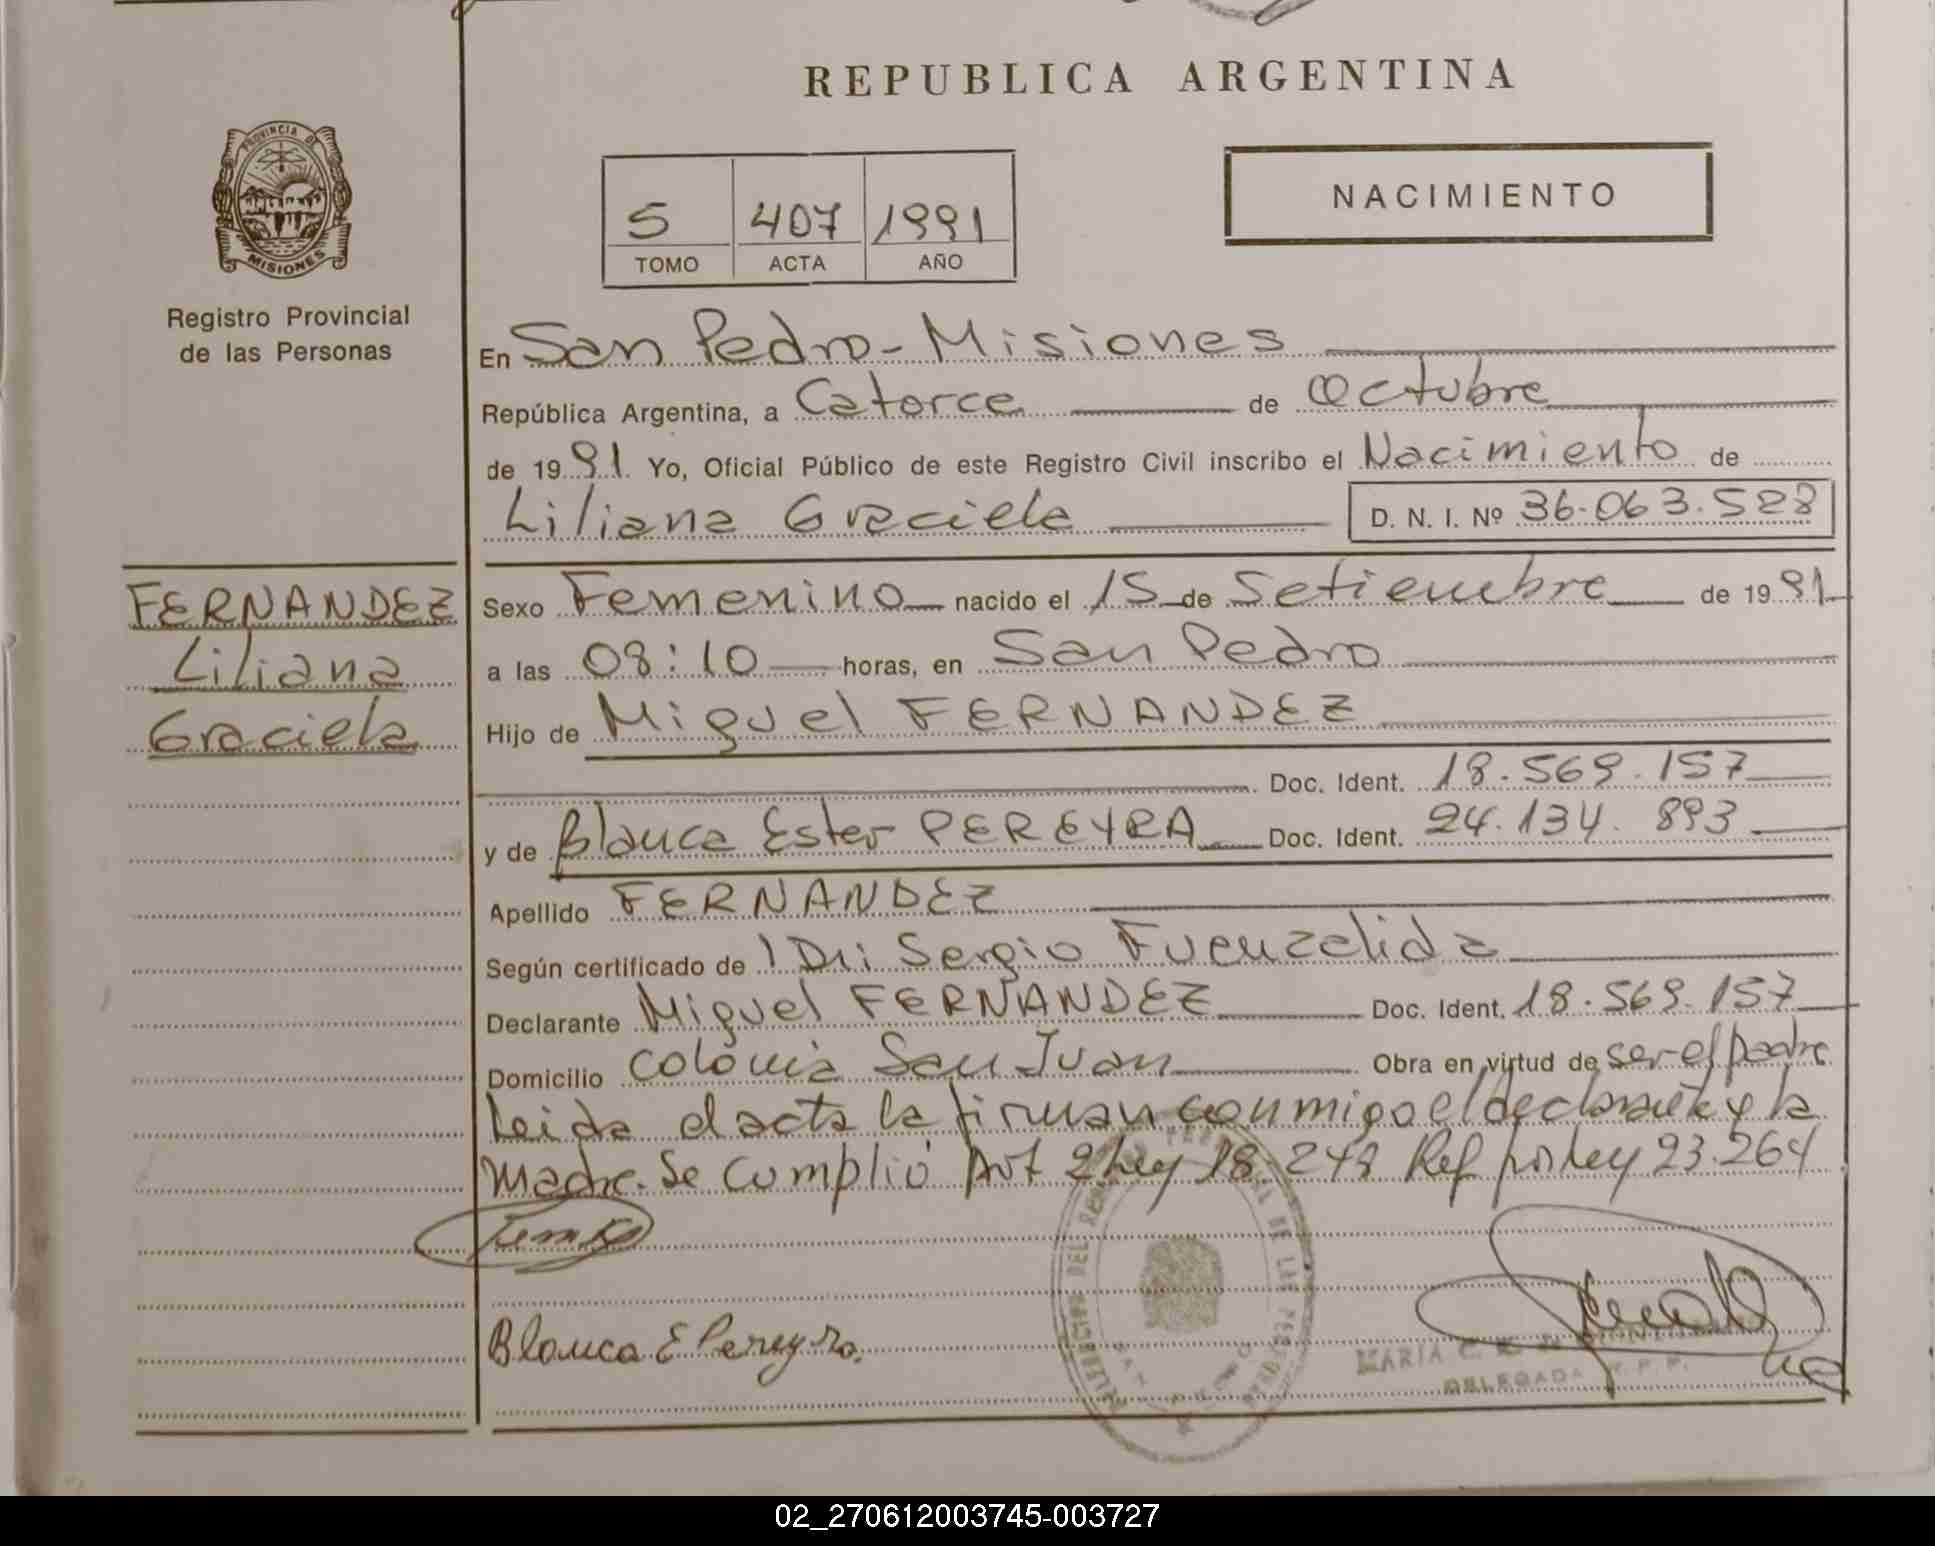 REPUBLICA ARGENTINA
PROVINCIA DE
MISIONES
Registro Provincial
de las Personas
NACIMIENTO
5 407 1991
TOMO ACTA AÑO
En San Pedro - Misiones
República Argentina, a Catorce de Octubre
de 1991. Yo, Oficial Público de este Registro Civil inscribo el Nacimiento de
Liliana Graciela D. N. I. Nº 36.063.528
FERNANDEZ
Liliana
Graciela
Sexo Femenino nacido el 15 de Setiembre de 1991
a las 08:10 horas, en San Pedro
Hijo de Miguel FERNANDEZ
Doc. Ident. 18.569.157
y de Blanca Ester PEREYRA Doc. Ident. 24.134.893
Apellido FERNANDEZ
Según certificado de Sergio Fuenzalida
Declarante Miguel FERNANDEZ Doc. Ident. 18.569.157
Domicilio Colonia San Juan Obra en virtud de ser el padre
Leida el acta la firman conmigo el declarante y la
Madre. Se cumplió Art 2 Ley 18.248 Ref por ley 23.264
Blanca E Pereyra.
MARIA C.
DELEGADA R. P. P.
02_270612003745-003727